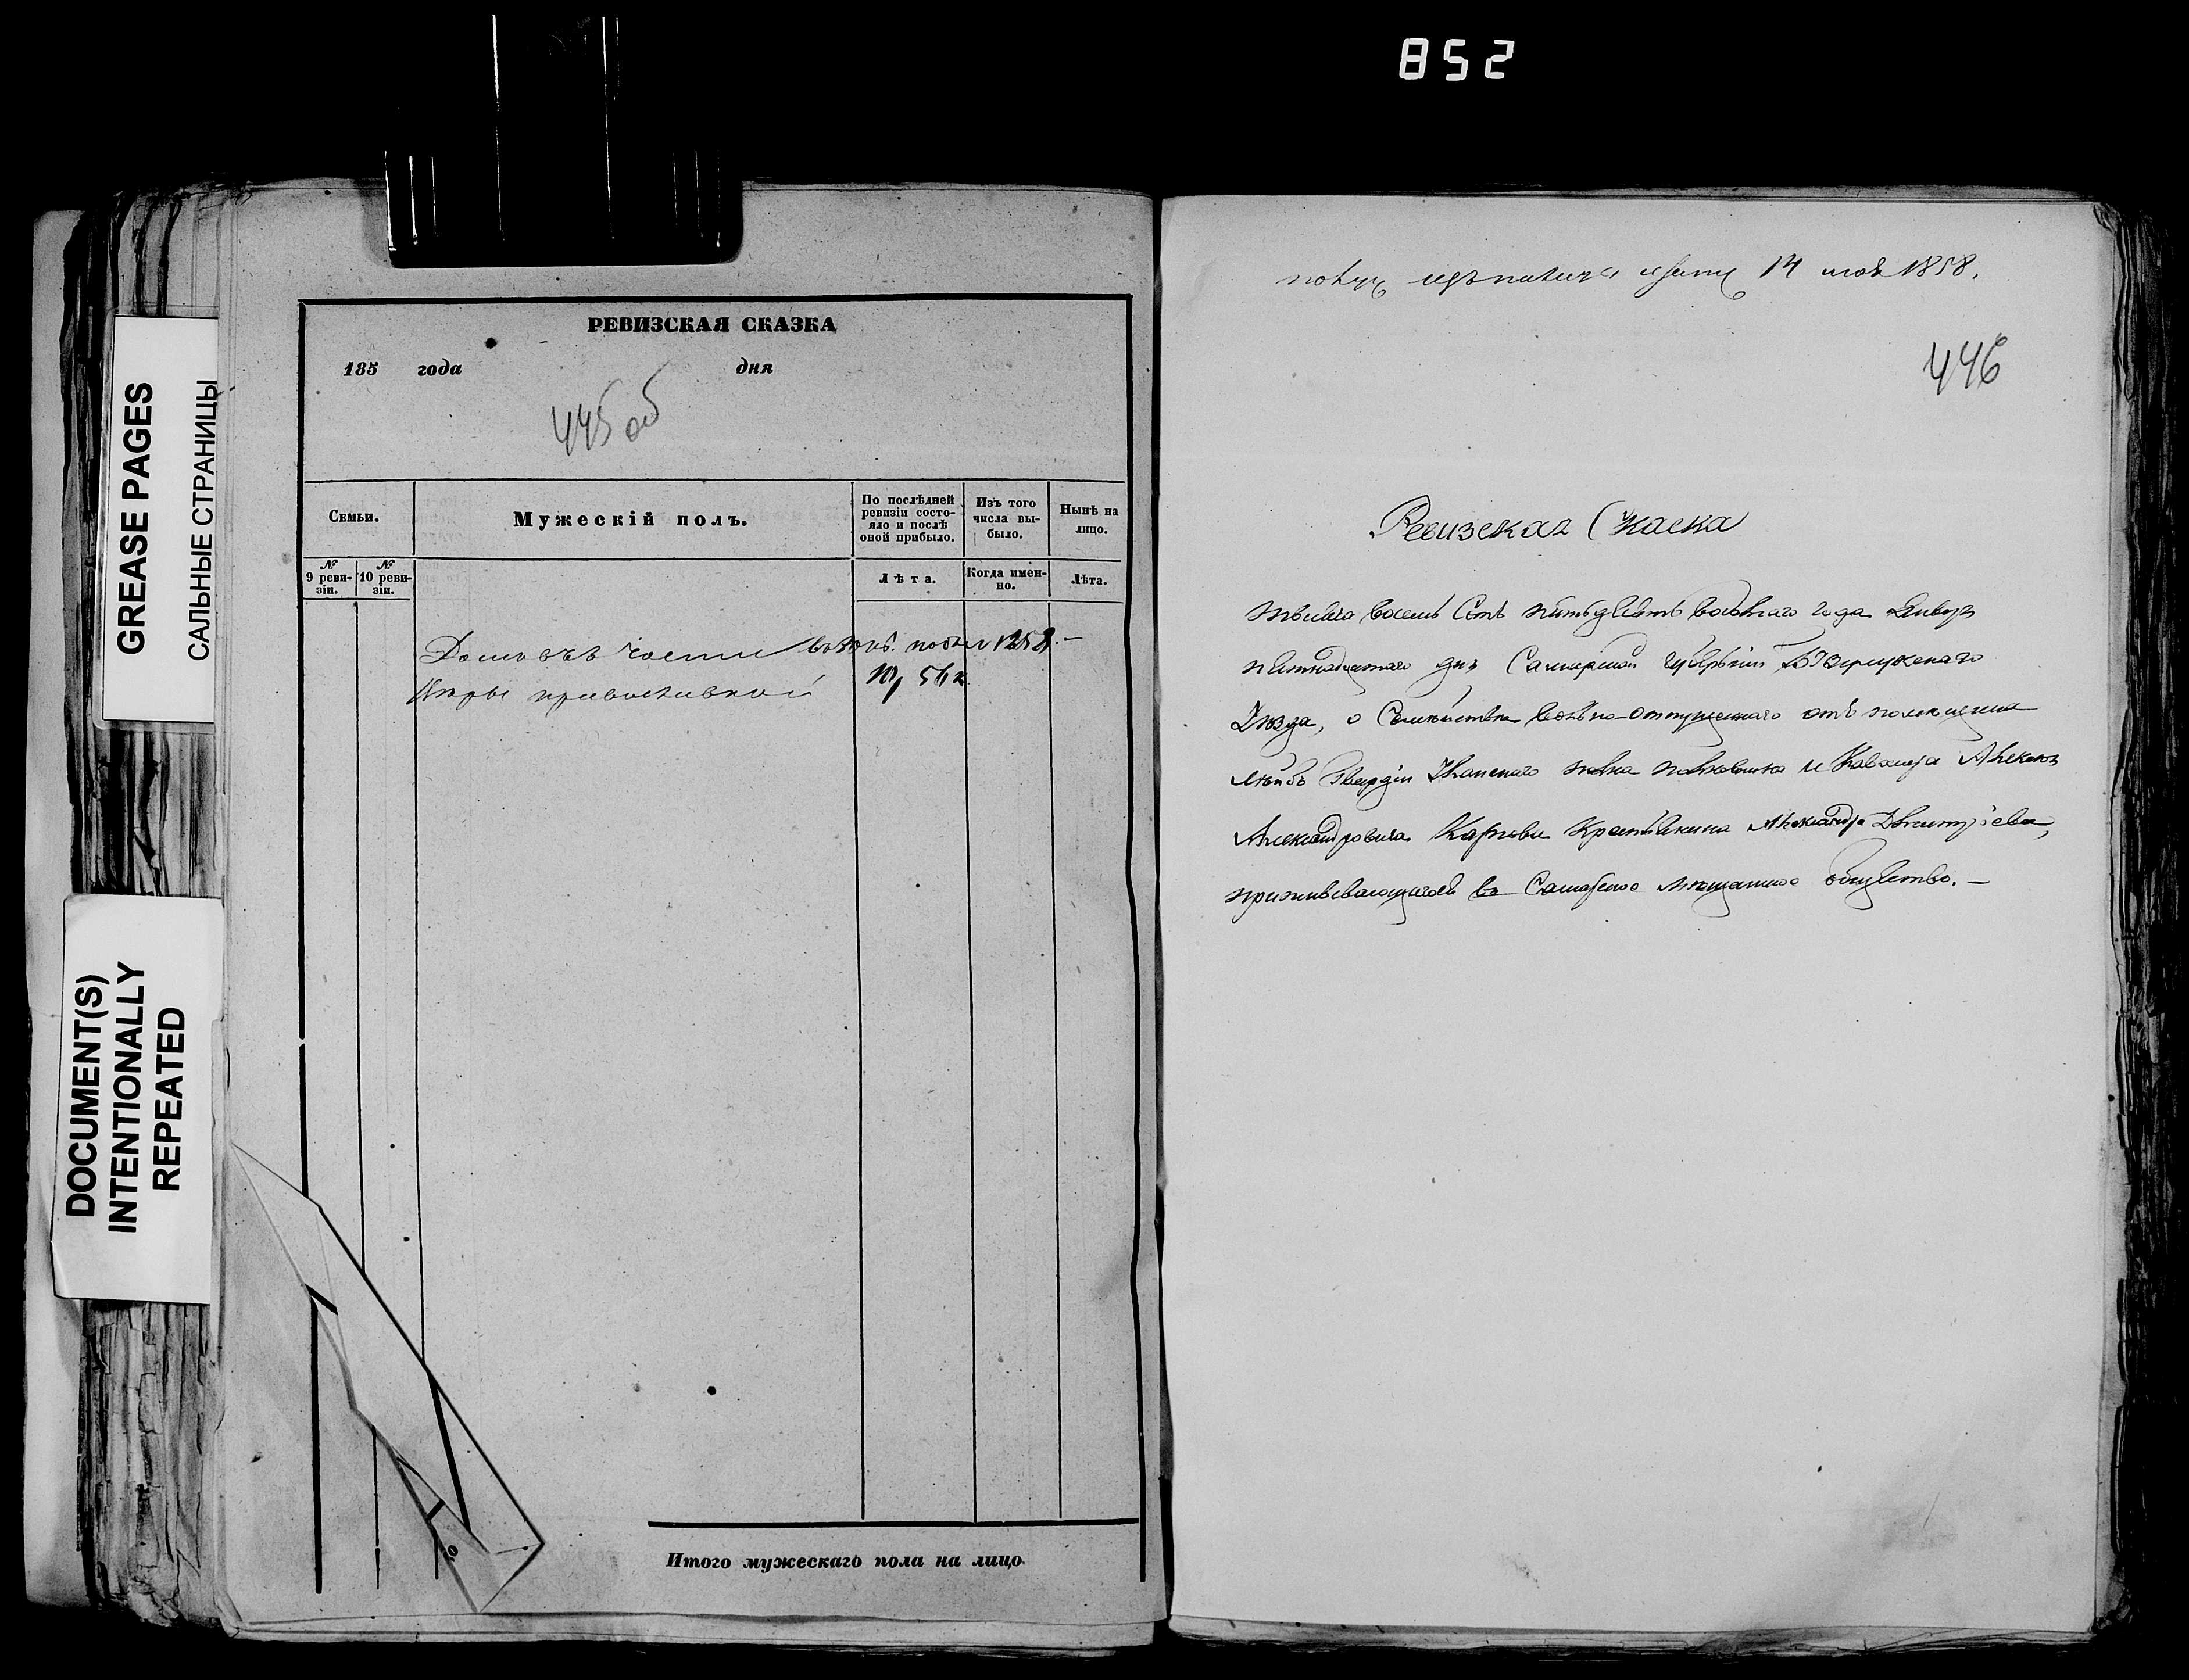 852
GREASE PAGES
САЛЬНЫЕ СТРАНИЦЫ
DOCUMENT(S)
INTENTIONALLY
REPEATED
РЕВИЗСКАЯ СКАЗКА
185 года дня
445 об
Семьи.
Мужескій полъ.
По послѣдней
ревизіи состо-
яло и послѣ
оной прибыло.
Изъ того
числа вы-
было.
Нынѣ на
лицо.
№
9 реви-
зіи.
№
10 реви-
зіи.
Лѣта.
Когда имен-
но.
Лѣта.
части 1858.
10, 56
Итого мужескаго пола на лицо
14 1858.
446
Ревизская Скаска
тысяча восемь Сотъ пятьдесятъ восьмаго года Января
пятнадцатаго дня Самарской губерніи Бузулукскаго
Уѣзда, о Семействѣ вольно-отпущеннаго отъ помещика
Лейбъ Гвардіи Уланскаго полка полковника и Кавалера Алексѣя
Александровича Карпова Крестьянина Александра Дмитріева,
приписывающагося въ Самарское мѣщанское общество.-